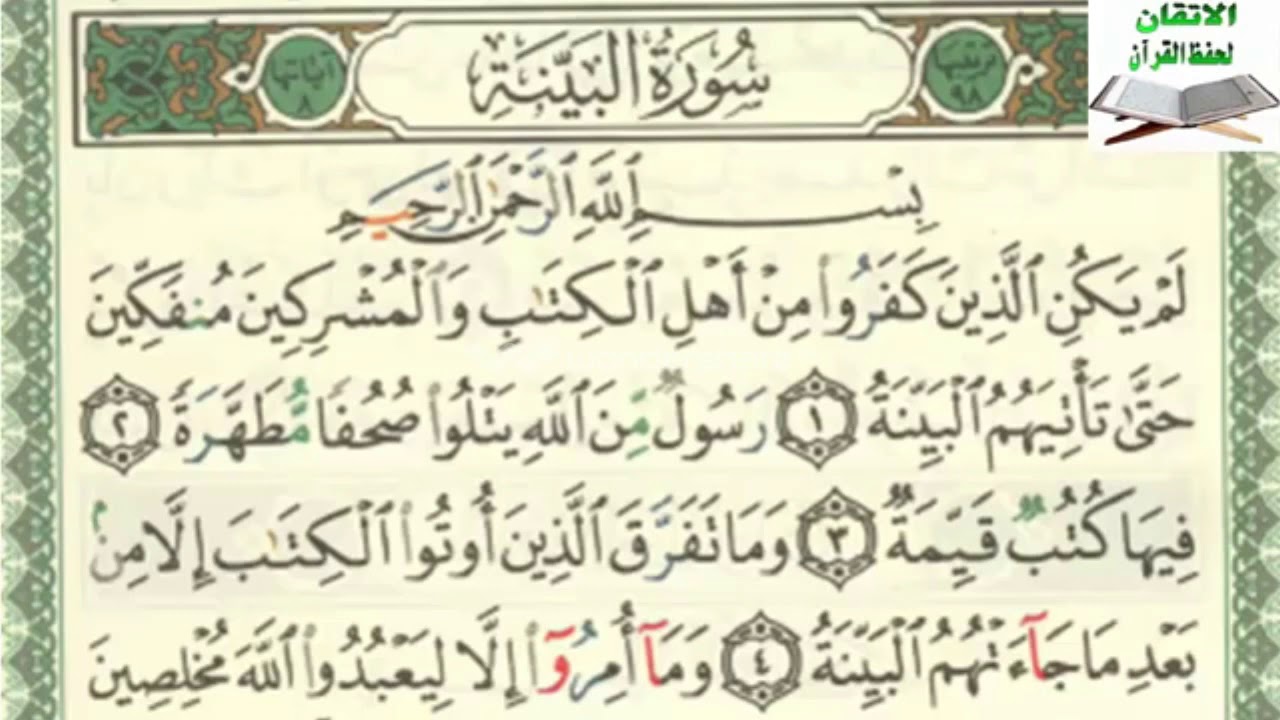 الاتقان
لحفظ القرآن
ترتيبها
٩٨
سُورَةُ الْبَيِّنَةِ
آياتها
٨
بِسْمِ ٱللَّهِ ٱلرَّحْمَٰنِ ٱلرَّحِيمِ
لَمْ يَكُنِ ٱلَّذِينَ كَفَرُوا۟ مِنْ أَهْلِ ٱلْكِتَٰبِ وَٱلْمُشْرِكِينَ مُنفَكِّينَ
حَتَّىٰ تَأْتِيَهُمُ ٱلْبَيِّنَةُ ١ رَسُولٌ مِّنَ ٱللَّهِ يَتْلُوا۟ صُحُفًا مُّطَهَّرَةً ٢
فِيهَا كُتُبٌ قَيِّمَةٌ ٣ وَمَا تَفَرَّقَ ٱلَّذِينَ أُوتُوا۟ ٱلْكِتَٰبَ إِلَّا مِنۢ
بَعْدِ مَا جَآءَتْهُمُ ٱلْبَيِّنَةُ ٤ وَمَآ أُمِرُوٓا۟ إِلَّا لِيَعْبُدُوا۟ ٱللَّهَ مُخْلِصِينَ